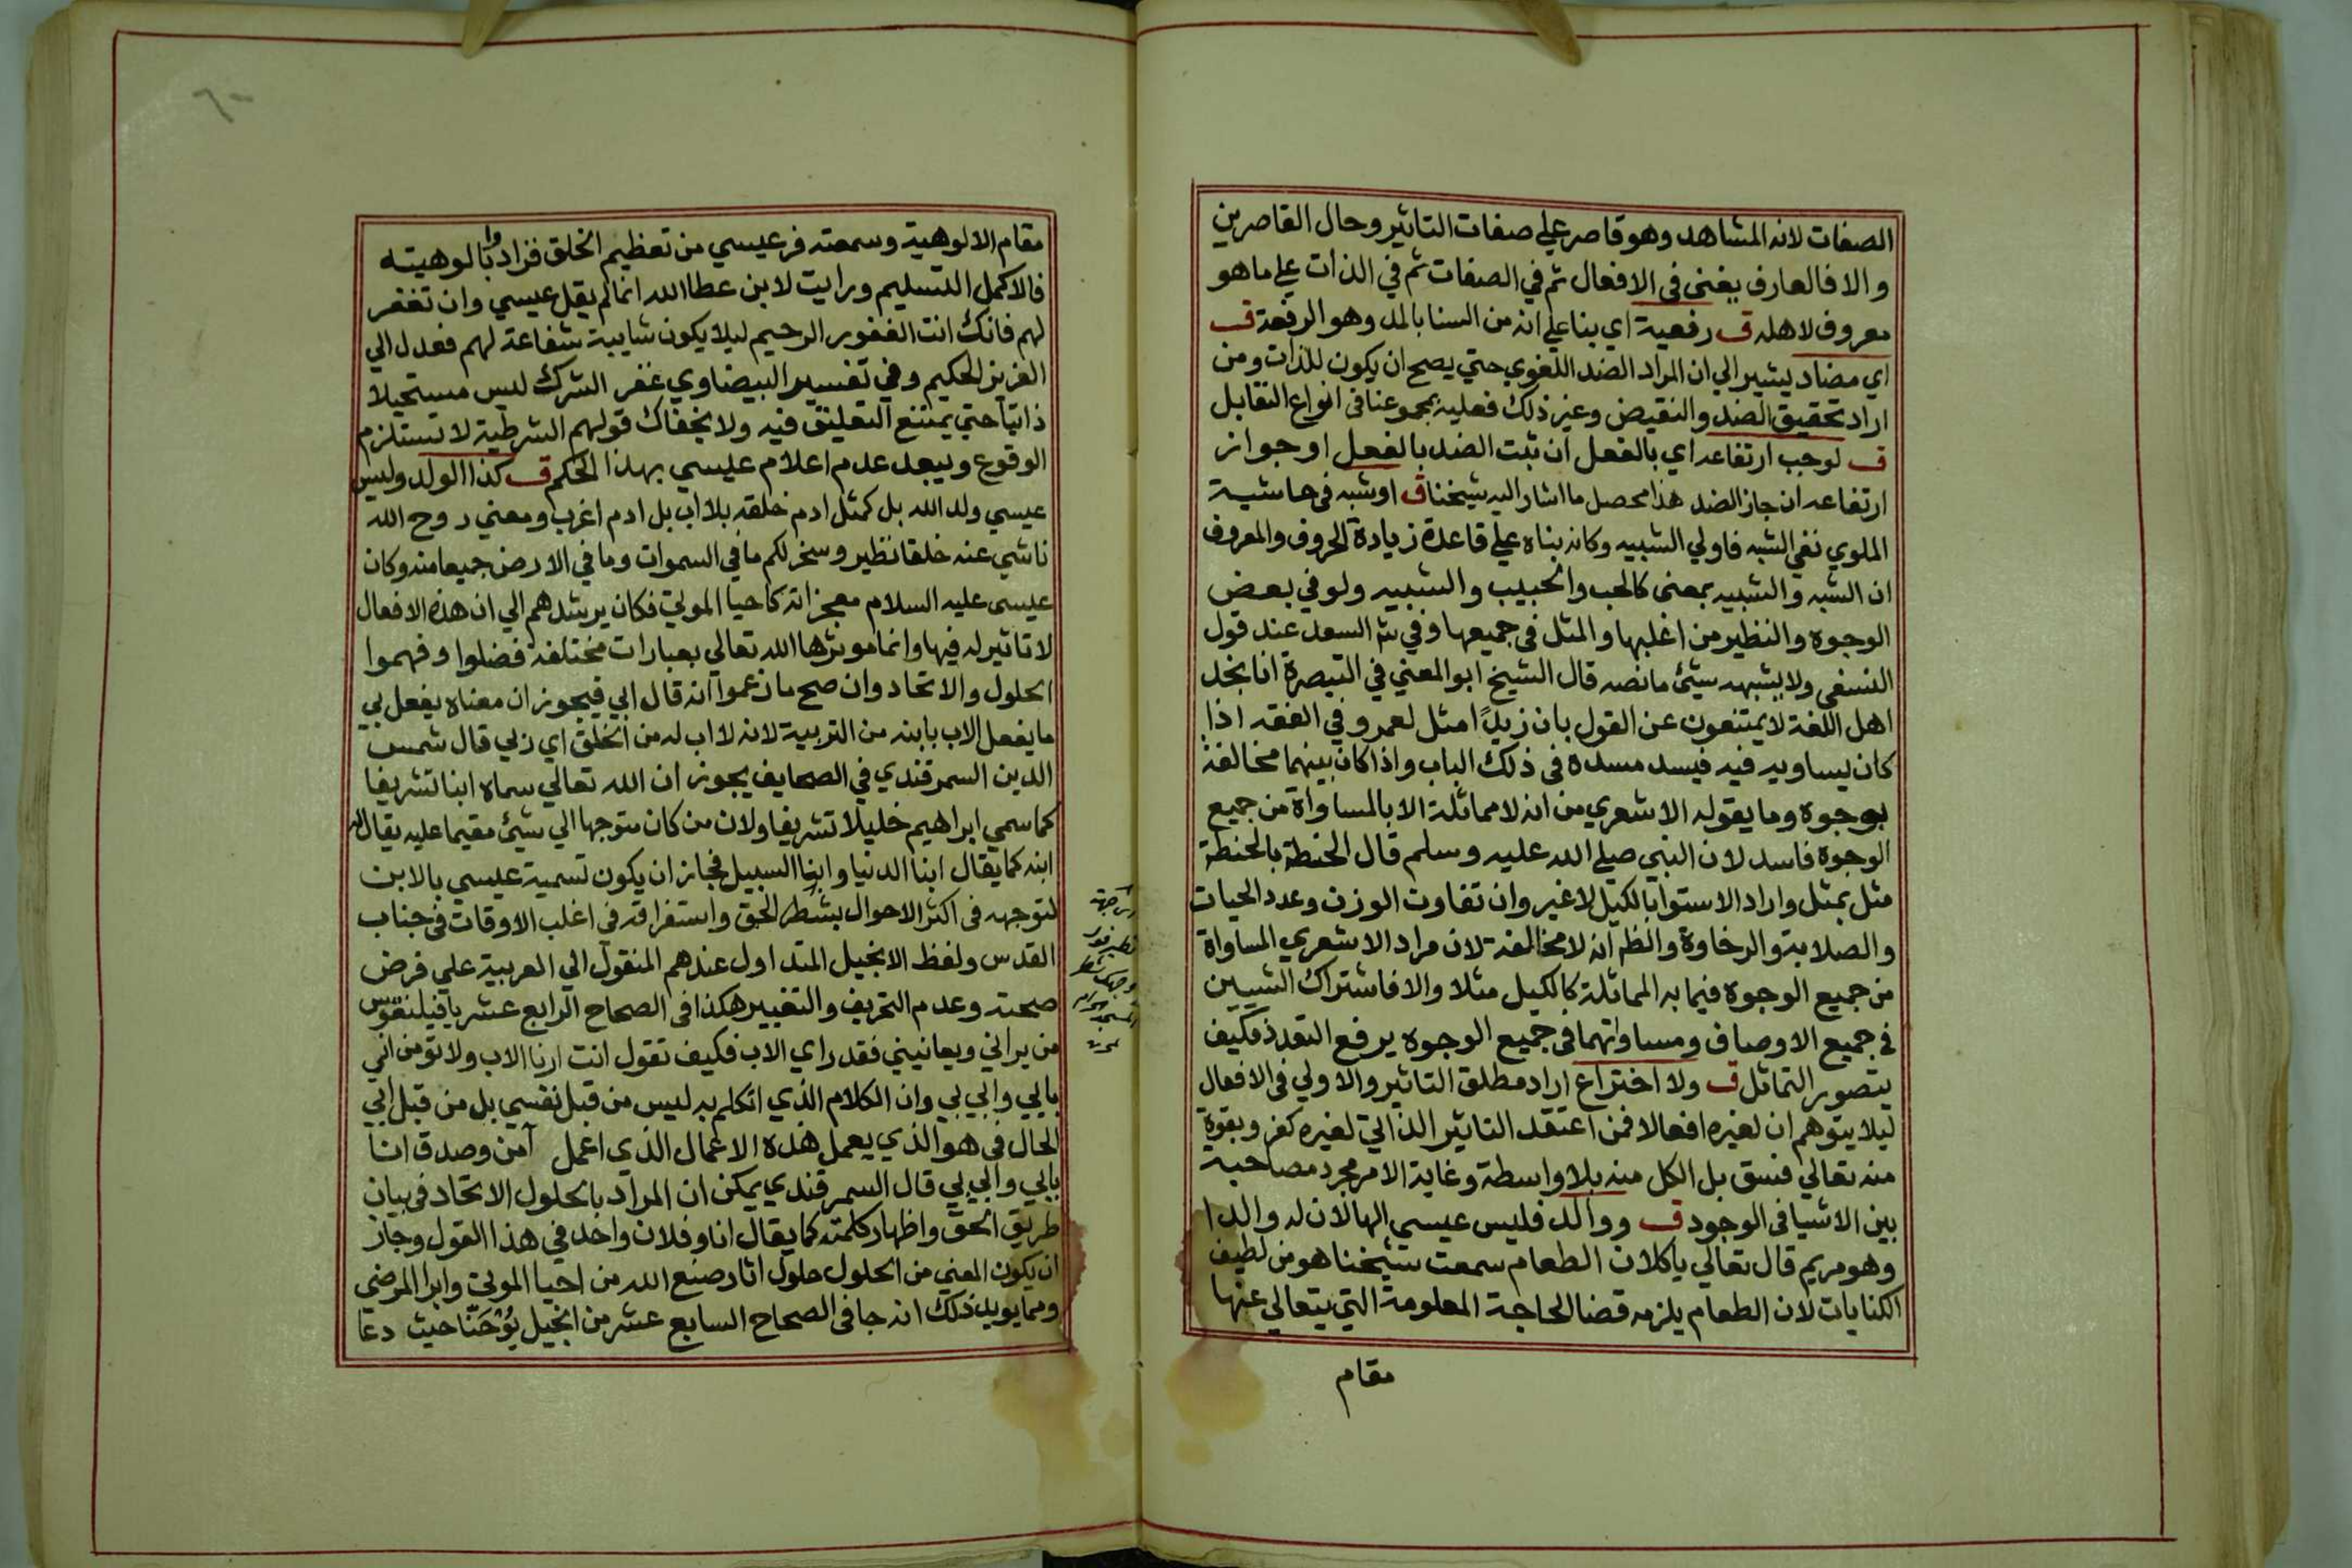 الصفات لانه المشاهد وهو قاصر علي صفات التاثير وحال القاصرين
والا فالعارف يغنى فى الافعال ثم في الصفات ثم في الذات علي ما هو
معروف لاهله ق رفعية اي بنا علي انه من السنا بالمد وهو الرفعة ق
اي مضاد يشير الي ان المراد الضد اللغوي حتي يصح ان يكون للذات ومن
اراد تحقيق الضد والنقيض وغير ذلك فعليه بمجموعنا فى انواع التقابل
ق لوجب ارتفاعه اي بالفعل ان ثبت الضد بالفعل او جواز
ارتفاعه ان جاز الضد هذا محصل ما اشار اليه شيخنا ق او شبه فى حاشية
الملوي نفي الشبه فاولي الشبيه وكانه بناه علي قاعدة زيادة الحروف والمعروف
ان الشبه والشبيه بمعنى كالحب والحبيب والشبيه ولو في بعض
الوجوه والنظير من اغلبها والمثل فى جميعها وفي شم السعد عند قول
النسفى ولا يشبهه شيئ ما نصه قال الشيخ ابو المعني في التبصرة انا نجد
اهل اللغة لا يمتنعون عن القول بان زيدًا مثل لعمرو في الفقه اذا
كان يساويه فيه فيسد مسده فى ذلك الباب واذا كان بينهما مخالفة
بوجوه وما يقوله الاشعري من انه لا مماثلة الا بالمساواة من جميع
الوجوه فاسد لان النبي صلي الله عليه وسلم قال الحنطة بالحنطة
مثل بمثل واراد الاستوا بالكيل لا غير وان تفاوت الوزن وعدد الحبات
والصلابة والرخاوة والظم انه لا مخالفة لان مراد الاشعري المساواة
من جميع الوجوه فيما به المماثلة كالكيل مثلا والا فاشتراك الشيين
في جميع الاوصاف ومساواتهما فى جميع الوجوه يرفع التعدد فكيف
يتصور التماثل ق ولا اختراع اراد مطلق التاثير والاولي فى الافعال
ليلا يتوهم ان لغيره افعالا فمن اعتقد التاثير الذاتي لغيره كفر وبقوة
منه تعالي فسق بل الكل منه بلا واسطة وغاية الامر مجرد مصاحبة
بين الاشيا فى الوجود ق ووالد فليس عيسي الها لان له والدا
وهو مريم قال تعالي ياكلان الطعام سمعت شيخنا هو من لطيف
الكنايات لان الطعام يلزمه قضا الحاجة المعلومة التي يتعالي عنها
مقام
مقام الالوهية وسمعته فر عيسي من تعظيم الخلق فزادوا بالوهيته
فالاكمل التسليم ورايت لابن عطا الله انما لم يقل عيسي وان تغفر
لهم فانك انت الغفور الرحيم ليلا يكون شايبة شفاعة لهم فعدل الي
العزيز الحكيم وفي تفسير البيضاوي غفر الشرك ليس مستحيلا
ذاتيا حتي يمتنع التعليق فيه ولا يخفاك قولهم الشرطية لا تستلزم
الوقوع ويبعد عدم اعلام عيسي بهذا الحكم ق كذا الولد وليس
عيسي ولد الله بل كمثل ادم خلقه بلا اب بل ادم اغرب ومعني روح الله
ناشي عنه خلقا نظير وسخر لكم ما في السموات وما في الارض جميعا منه وكان
عيسى عليه السلام معجزاته كاحيا الموتي فكان يرشدهم الي ان هذه الافعال
لا تاثير له فيها وانما موثرها الله تعالي بعبارات مختلفة فضلوا وفهموا
الحلول والاتحاد وان صح ما زعموا انه قال ابي فيجوز ان معناه يفعل بي
ما يفعل الاب بابنه من التربية لانه لا اب له من الخلق اي زلي قال شمس
الدين السمرقندي في الصحايف يجوز ان الله تعالي سماه ابنا تشريفا
كما سمي ابراهيم خليلا تشريفا ولان من كان متوجها الي شيئ مقيما عليه يقال له
ابنه كما يقال ابنا الدنيا وابنا السبيل فجاز ان يكون تسمية عيسي بالابن
لتوجهه فى اكثر الاحوال بشطر الحق واستغراقه فى اغلب الاوقات فى جناب
القدس ولفظ الانجيل المتداول عندهم المنقول الي العربية علي فرض
صحته وعدم التحريف والتغيير هكذا فى الصحاح الرابع عشر يا فيلنفوس
من يراني ويعانيني فقد راي الاب فكيف تقول انت ارنا الاب ولا تومن اني
بابي وابي بي وان الكلام الذي اتكلم به ليس من قبل نفسي بل من قبل ابي
الحال في هو الذي يعمل هذه الاعمال الذي اعمل آمن وصدق انا
بابي وابي بي قال السمرقندي يمكن ان المراد بالحلول الاتحاد فى بيان
طريق الحق واظهار كلمته كما يقال انا وفلان واحد في هذا القول وجاز
ان يكون المعني من الحلول حلول اثار صنع الله من احيا الموتي وابرا المرضى
ومما يويد ذلك انه جا فى الصحاح السابع عشر من انجيل يُوْحَنَّا حيث دعا